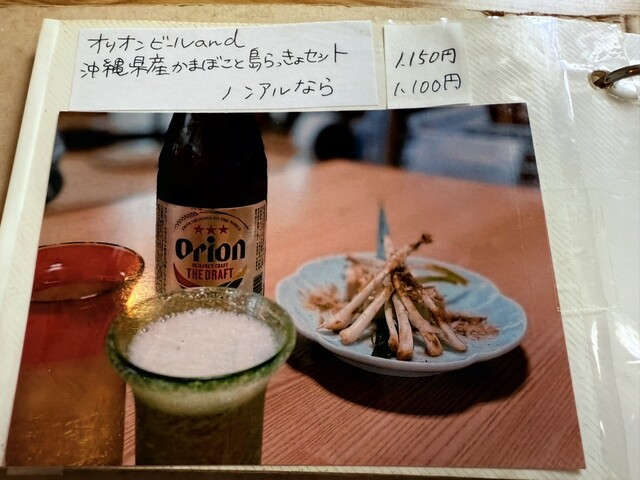 オリオンビールand
沖縄県産かまぼこと島らっきょセット
1.150円
ノンアルなら
1.100円
Orion
THE DRAFT